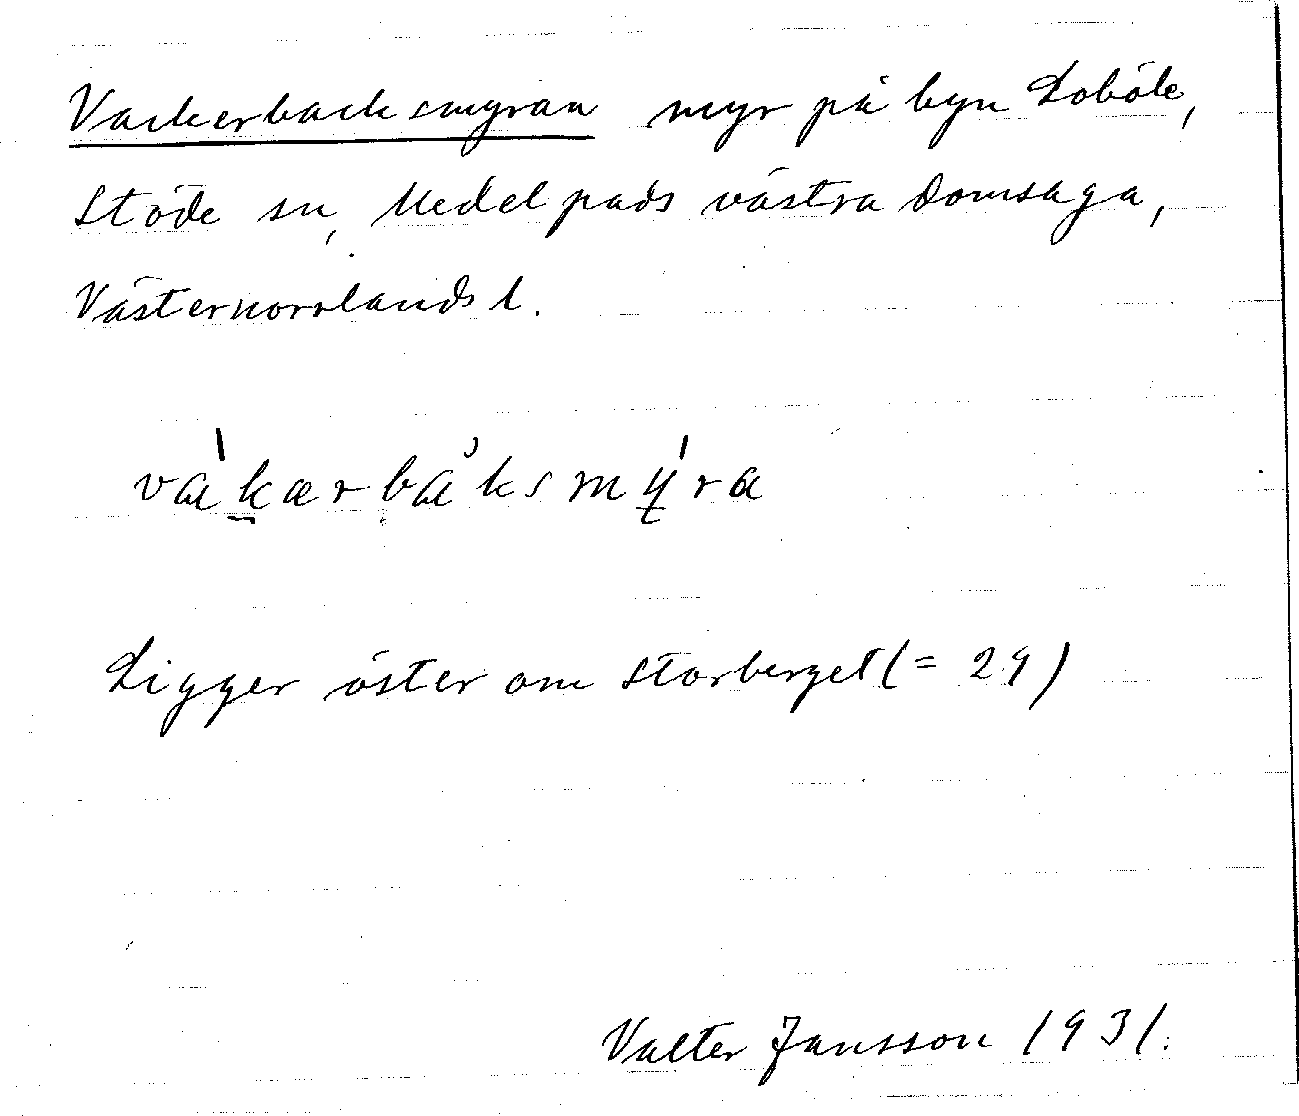 Vackerbacksmyran myr på byn Loböle,
Stöde sn, Medelpads västra domsaga,
Västernorrlands l.
vákærbàksmýra
Ligger öster om Storberget (= 29)
Valter Jansson 1931.